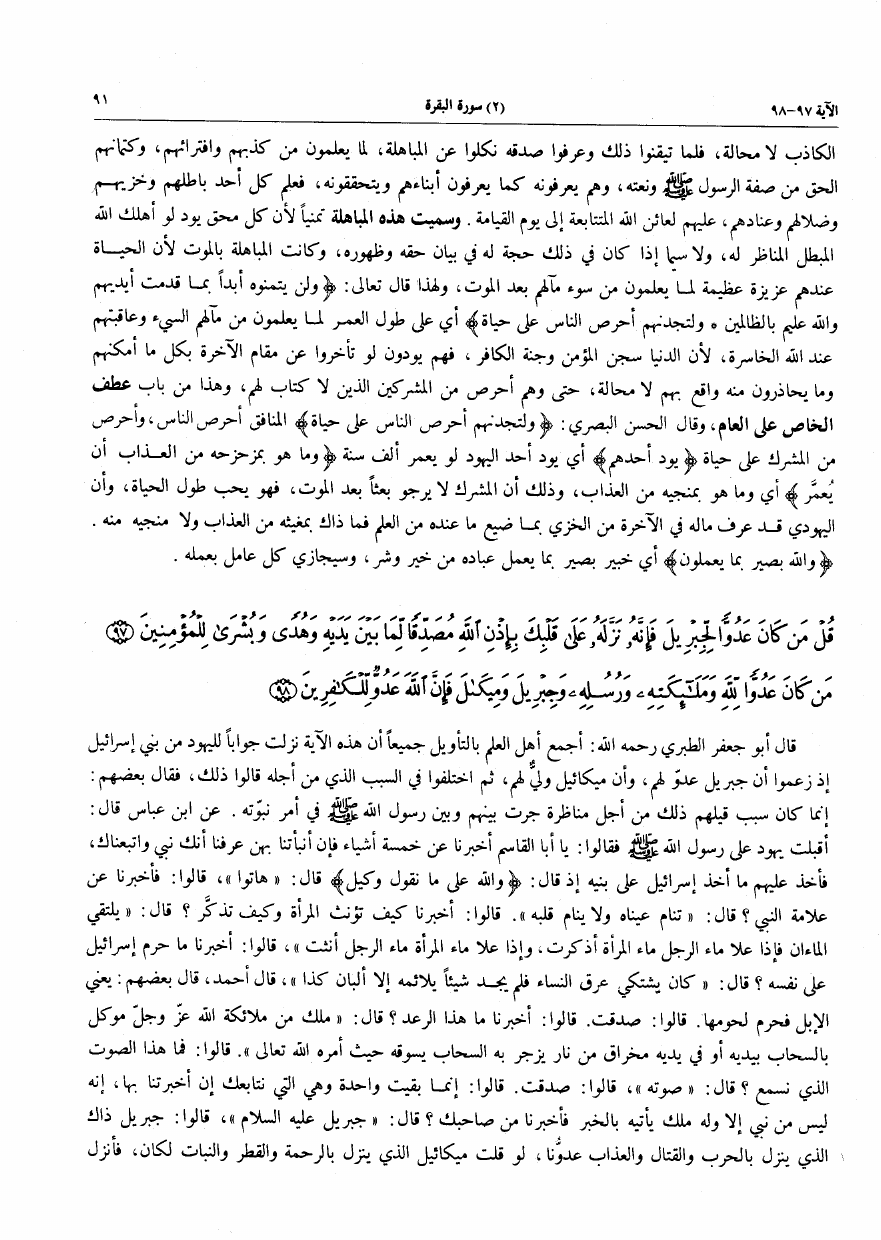 الآية ٩٧-٩٨ (٢) سورة البقرة ٩١
الكاذب لا محالة، فلما تيقنوا ذلك وعرفوا صدقه نكلوا عن المباهلة، لما يعلمون من كذبهم وافترائهم، وكتمانهم
الحق من صفة الرسول ﷺ ونعته، وهم يعرفونه كما يعرفون أبناءهم ويتحققونه، فعلم كل أحد باطلهم وخزيهم
وضلالهم وعنادهم، عليهم لعائن الله المتتابعة إلى يوم القيامة. وسميت هذه المباهلة تمنياً لأن كل محق يود لو أهلك الله
المبطل المناظر له، ولا سيما إذا كان في ذلك حجة له في بيان حقه وظهوره، وكانت المباهلة بالموت لأن الحيــاة
عندهم عزيزة عظيمة لمــا يعلمون من سوء مآلهم بعد الموت، ولهذا قال تعالى: ﴿ولن يتمنوه أبداً بمــا قدمت أيديهم
والله عليم بالظالمين ٥ ولتجدنهم أحرص الناس على حياة﴾ أي على طول العمر لمــا يعلمون من مآلهم السيء وعاقبتهم
عند الله الخاسرة، لأن الدنيا سجن المؤمن وجنة الكافر، فهم يودون لو تأخروا عن مقام الآخرة بكل ما أمكنهم
وما يحاذرون منه واقع بهم لا محالة، حتى وهم أحرص من المشركين الذين لا كتاب لهم، وهذا من باب عطف
الخاص على العام، وقال الحسن البصري: ﴿ولتجدنهم أحرص الناس على حياة﴾ المنافق أحرص الناس، وأحرص
من المشرك على حياة ﴿يود أحدهم﴾ أي يود أحد اليهود لو يعمر ألف سنة ﴿وما هو بمزحزحه من العــذاب أن
يُعمَّر﴾ أي وما هو بمنجيه من العذاب، وذلك أن المشرك لا يرجو بعثاً بعد الموت، فهو يحب طول الحياة، وأن
اليهودي قــد عرف ماله في الآخرة من الخزي بمــا ضيع ما عنده من العلم فما ذاك بمغيثه من العذاب ولا منجيه منه.
﴿والله بصير بما يعملون﴾ أي خبير بصير بما يعمل عباده من خير وشر، وسيجازي كل عامل بعمله.
قُلْ مَن كَانَ عَدُوًّا لِّجِبْرِيلَ فَإِنَّهُۥ نَزَّلَهُۥ عَلَىٰ قَلْبِكَ بِإِذْنِ ٱللَّهِ مُصَدِّقًا لِّمَا بَيْنَ يَدَيْهِ وَهُدًى وَبُشْرَىٰ لِلْمُؤْمِنِينَ ٩٧
مَن كَانَ عَدُوًّا لِّلَّهِ وَمَلَٰٓئِكَتِهِۦ وَرُسُلِهِۦ وَجِبْرِيلَ وَمِيكَىٰلَ فَإِنَّ ٱللَّهَ عَدُوٌّ لِّلْكَٰفِرِينَ ٩٨
قال أبو جعفر الطبري رحمه الله: أجمع أهل العلم بالتأويل جميعاً أن هذه الآية نزلت جواباً لليهود من بني إسرائيل
إذ زعموا أن جبريل عدوّ لهم، وأن ميكائيل وليٌّ لهم، ثم اختلفوا في السبب الذي من أجله قالوا ذلك، فقال بعضهم:
إنما كان سبب قيلهم ذلك من أجل مناظرة جرت بينهم وبين رسول الله ﷺ في أمر نبوّته. عن ابن عباس قال:
أقبلت يهود على رسول الله ﷺ فقالوا: يا أبا القاسم أخبرنا عن خمسة أشياء فإن أنبأتنا بهن عرفنا أنك نبي واتبعناك،
فأخذ عليهم ما أخذ إسرائيل على بنيه إذ قال: ﴿والله على ما نقول وكيل﴾ قال: « هاتوا »، قالوا: فأخبرنا عن
علامة النبي؟ قال: « تنام عيناه ولا ينام قلبه ». قالوا: أخبرنا كيف تؤنث المرأة وكيف تذكَّر؟ قال: « يلتقي
الماءان فإذا علا ماء الرجل ماء المرأة أذكرت، وإذا علا ماء المرأة ماء الرجل أنثت »، قالوا: أخبرنا ما حرم إسرائيل
على نفسه؟ قال: « كان يشتكي عرق النساء فلم يجــد شيئاً يلائمه إلا ألبان كذا »، قال أحمد، قال بعضهم: يعني
الإبل فحرم لحومها. قالوا: صدقت. قالوا: أخبرنا ما هذا الرعد؟ قال: « ملك من ملائكة الله عزّ وجلّ موكل
بالسحاب بيديه أو في يديه مخراق من نار يزجر به السحاب يسوقه حيث أمره الله تعالى ». قالوا: فما هذا الصوت
الذي نسمع؟ قال: « صوته »، قالوا: صدقت. قالوا: إنمــا بقيت واحدة وهي التي نتابعك إن أخبرتنا بها، إنه
ليس من نبي إلا وله ملك يأتيه بالخبر فأخبرنا من صاحبك؟ قال: « جبريل عليه السلام »، قالوا: جبريل ذاك
الذي ينزل بالحرب والقتال والعذاب عدوُّنا، لو قلت ميكائيل الذي ينزل بالرحمة والقطر والنبات لكان، فأنزل